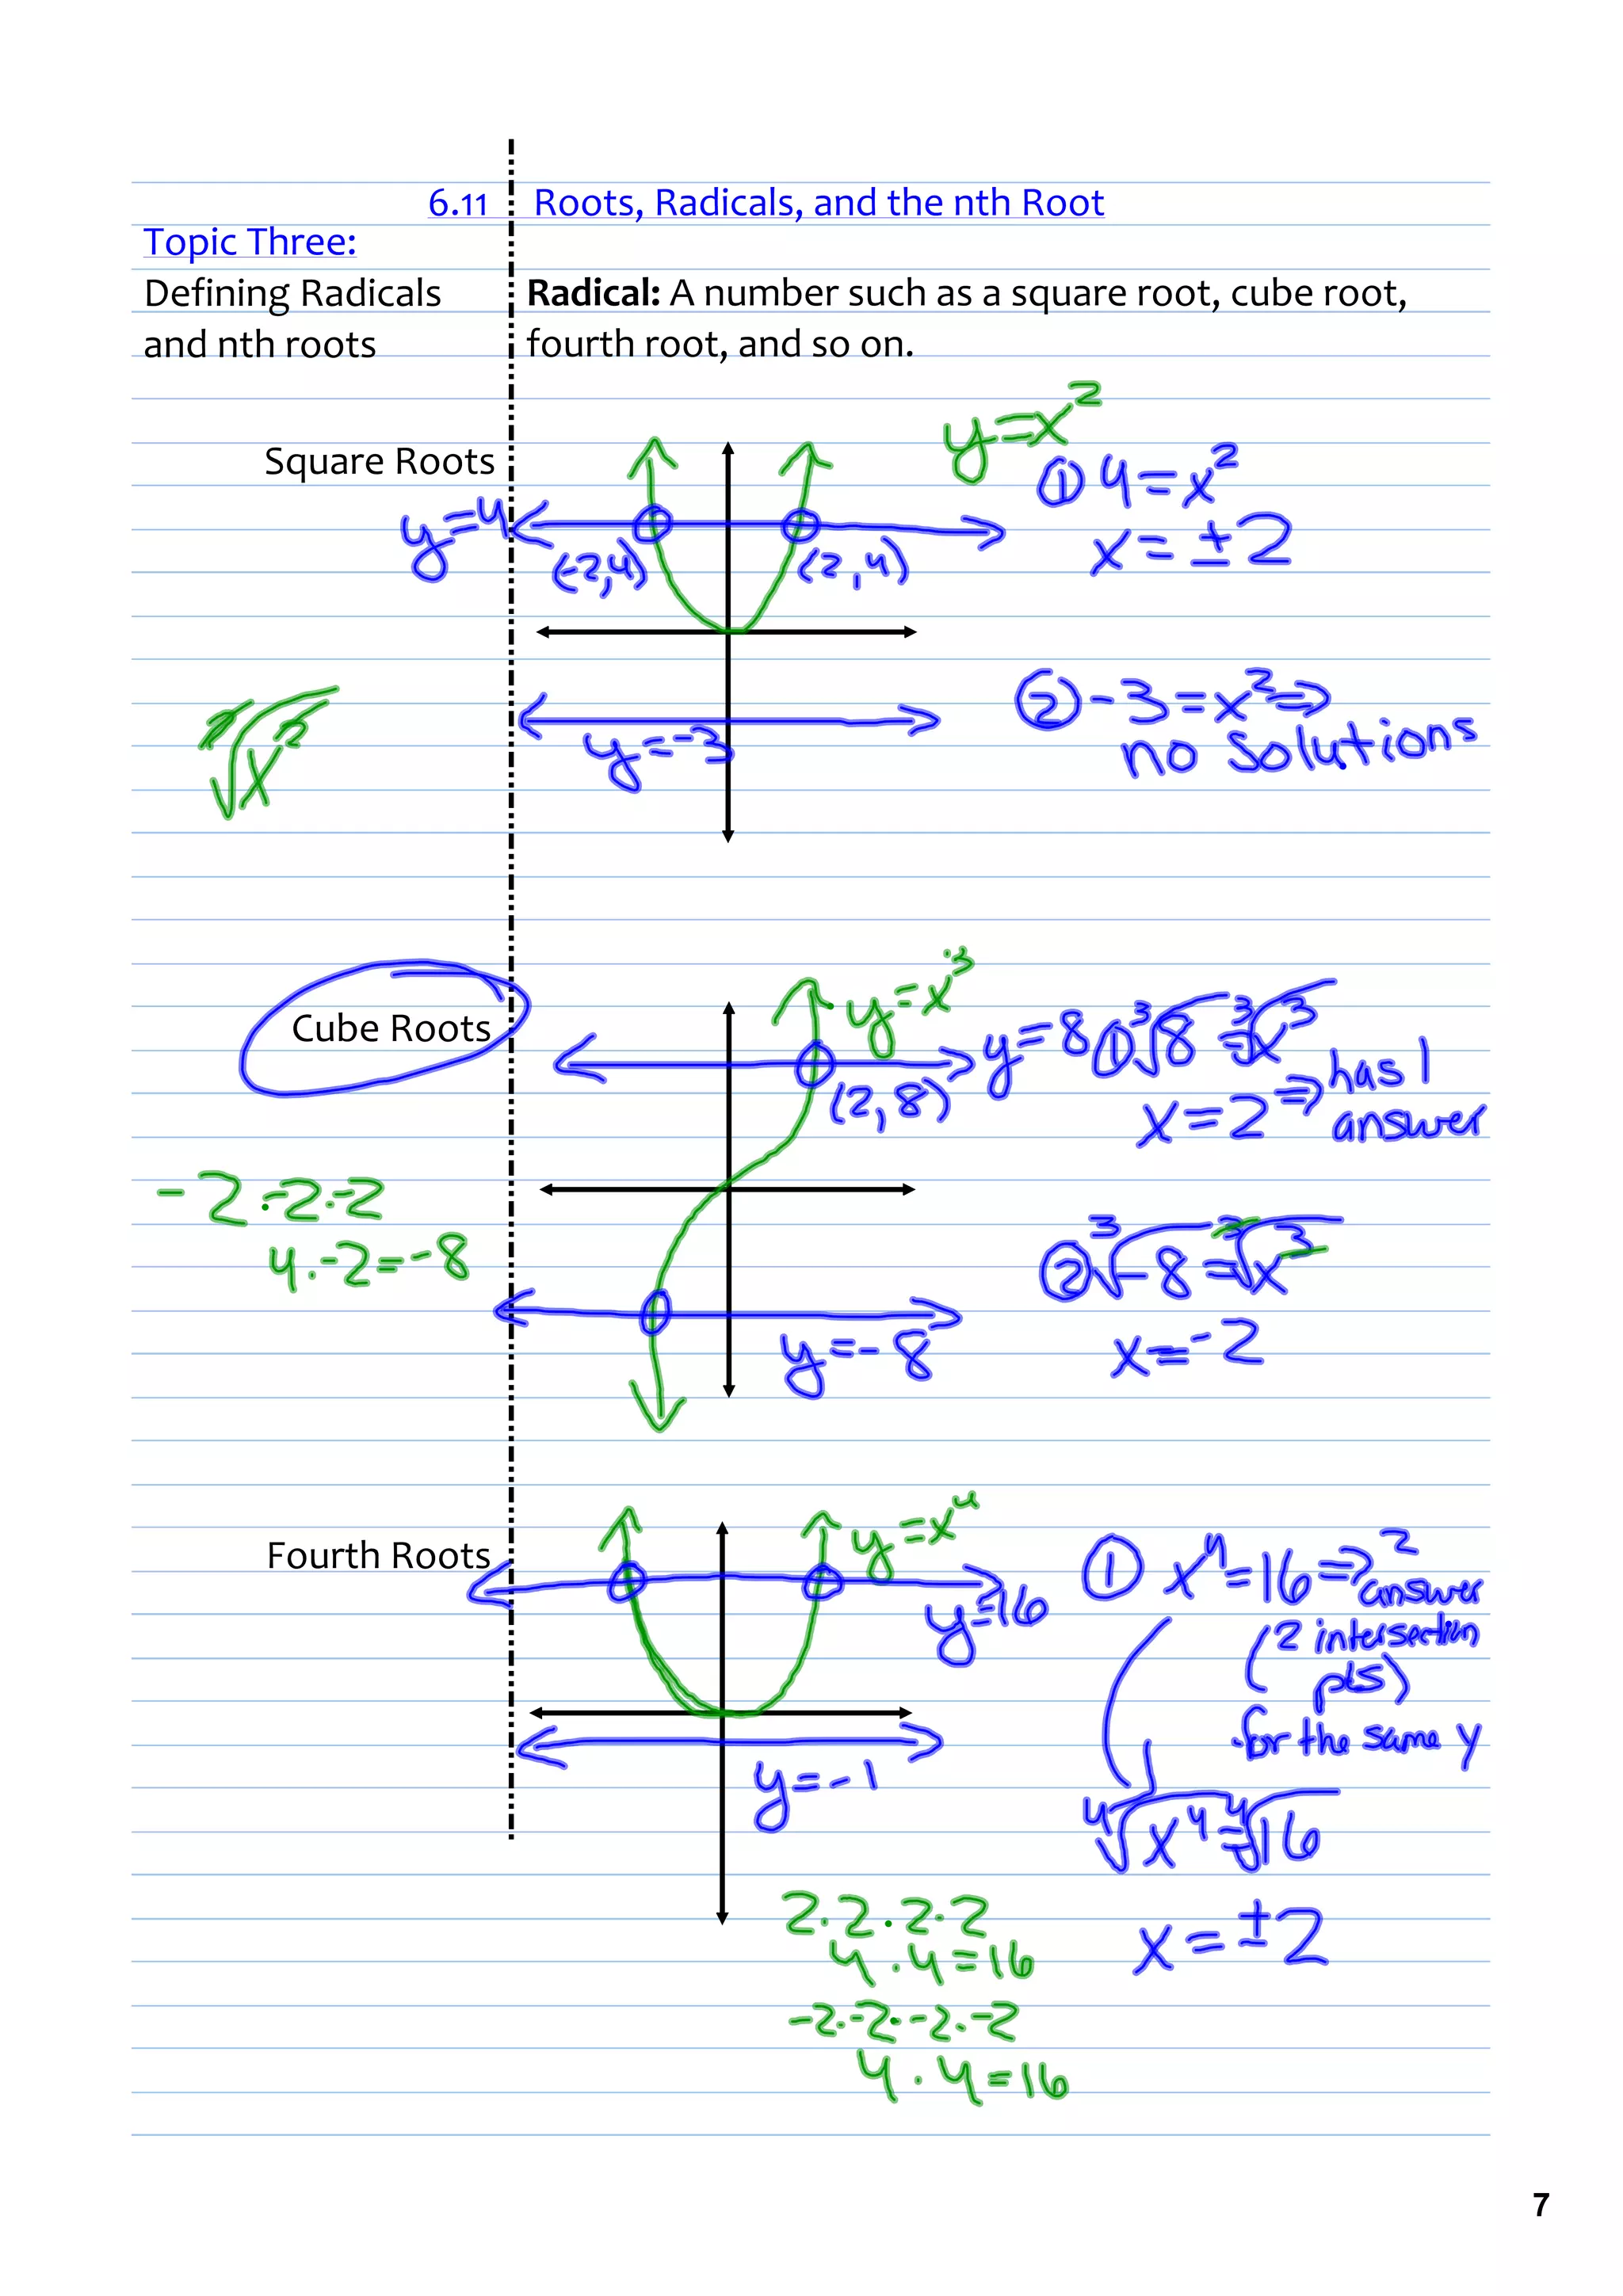 6.11 Roots, Radicals, and the nth Root
Topic Three:
Defining Radicals
and nth roots
Radical: A number such as a square root, cube root,
fourth root, and so on.
Square Roots
y=x²
① 4=x²
x=±2
y=4
(-2,4)
(2,4)
② -3=x² ⇒
no solutions
y=-3
²√x²
Cube Roots
y=x³
y=8
① ³√8=³√x³
(2,8)
x=2 ⇒ has 1
answer
-2·-2·-2
4·-2=-8
② ³√-8=³√x³
x=-2
y=-8
Fourth Roots
y=x⁴
y=16
① x⁴=16 ⇒ 2
answer
(2 intersection
pts)
for the same y
y=-1
⁴√x⁴=⁴√16
x=±2
2·2·2·2
4·4=16
-2·-2·-2·-2
4·4=16
7